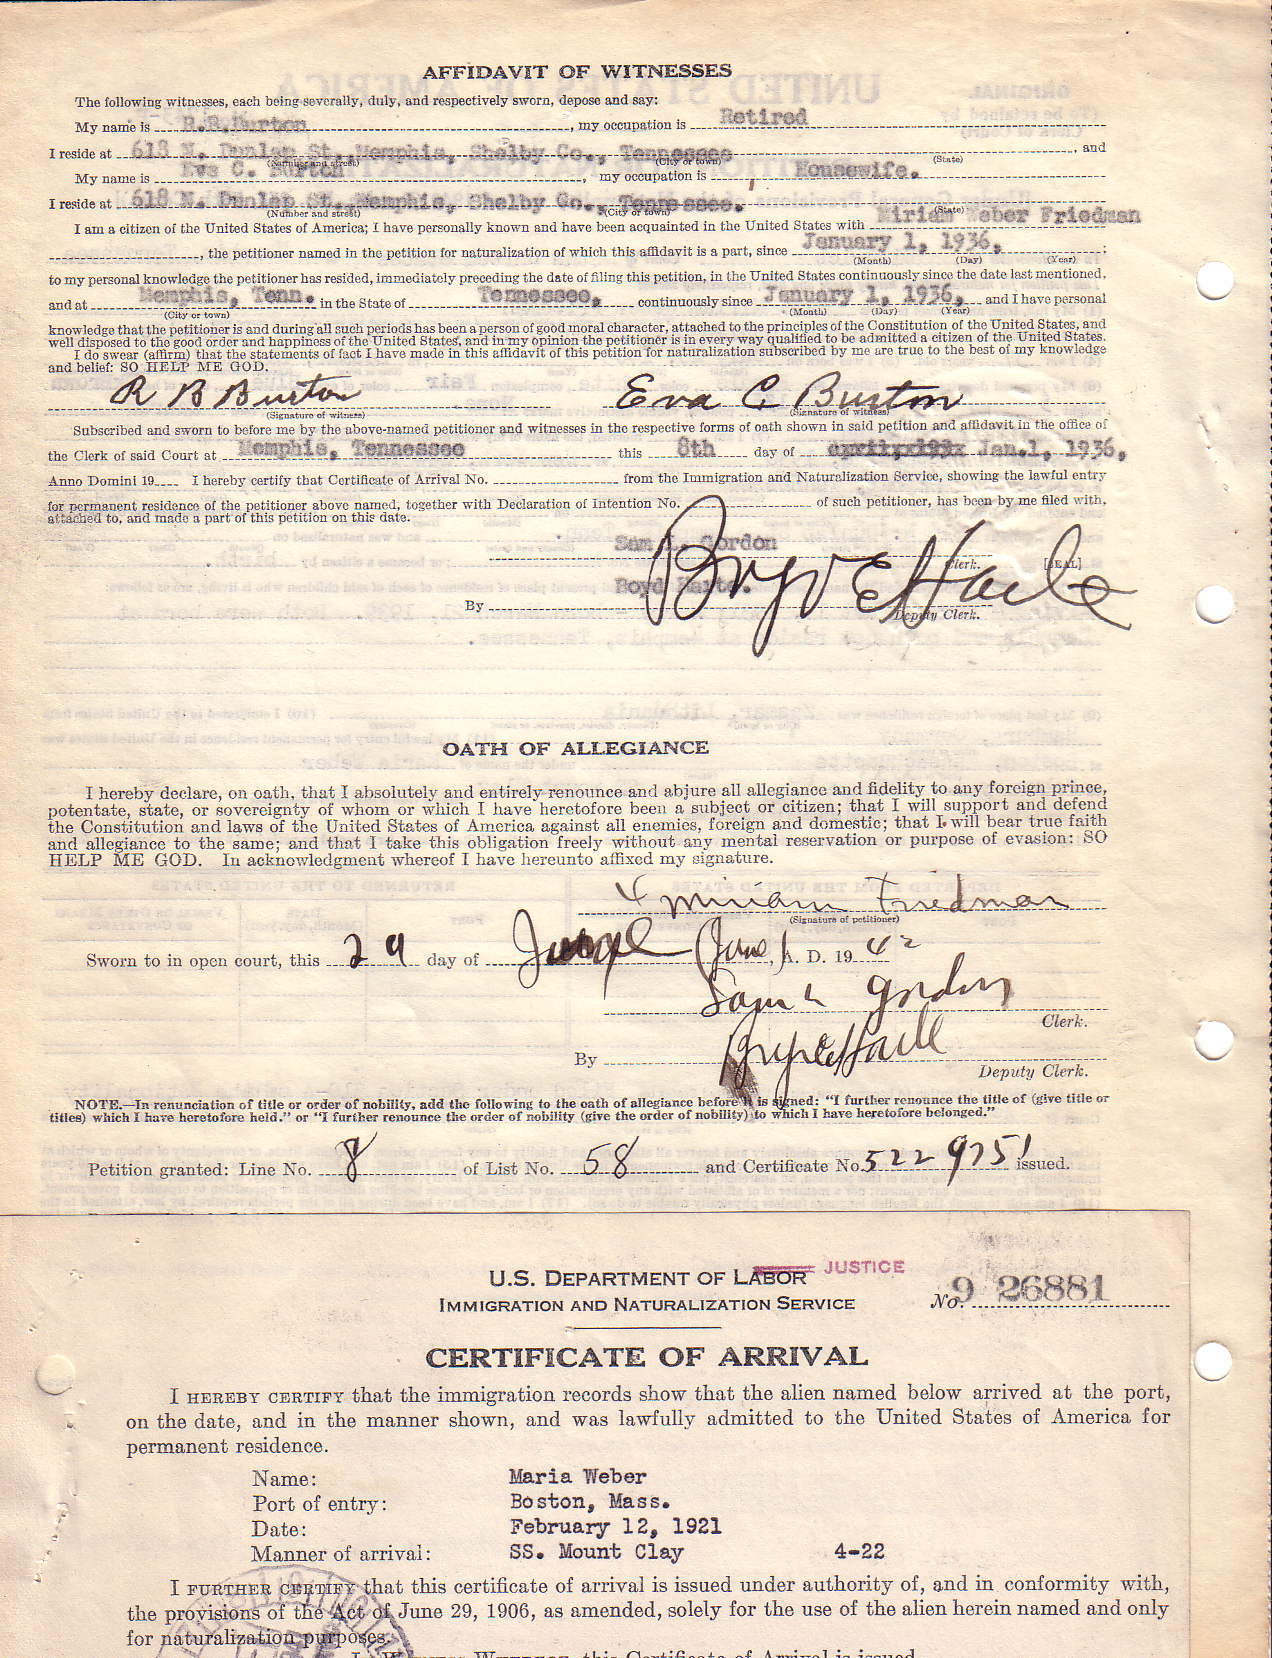 AFFIDAVIT OF WITNESSES
The following witnesses, each being severally, duly, and respectively sworn, depose and say:
My name is R.B.Burton, my occupation is Retired
I reside at 618 N. Dunlap St. Memphis, Shelby Co., Tennessee, and
(Number and street) (City or town) (State)
My name is Eva C. Burton, my occupation is Housewife.
I reside at 618 N. Dunlap St. Memphis, Shelby Co., Tennessee.
(Number and street) (City or town) (State)
I am a citizen of the United States of America; I have personally known and have been acquainted in the United States with Miriam Weber Friedman
, the petitioner named in the petition for naturalization of which this affidavit is a part, since January 1, 1936, ;
(Month) (Day) (Year)
to my personal knowledge the petitioner has resided, immediately preceding the date of filing this petition, in the United States continuously since the date last mentioned,
and at Memphis, Tenn. in the State of Tennessee, continuously since January 1, 1936, and I have personal
(City or town) (Month) (Day) (Year)
knowledge that the petitioner is and during all such periods has been a person of good moral character, attached to the principles of the Constitution of the United States, and
well disposed to the good order and happiness of the United States, and in my opinion the petitioner is in every way qualified to be admitted a citizen of the United States.
I do swear (affirm) that the statements of fact I have made in this affidavit of this petition for naturalization subscribed by me are true to the best of my knowledge
and belief: SO HELP ME GOD.
R B Burton Eva C Burton
(Signature of witness) (Signature of witness)
Subscribed and sworn to before me by the above-named petitioner and witnesses in the respective forms of oath shown in said petition and affidavit in the office of
the Clerk of said Court at Memphis, Tennessee this 8th day of Jan.1, 1936,
Anno Domini 19 I hereby certify that Certificate of Arrival No. from the Immigration and Naturalization Service, showing the lawful entry
for permanent residence of the petitioner above named, together with Declaration of Intention No. of such petitioner, has been by me filed with,
attached to, and made a part of this petition on this date.
Sam L. Gordon
Clerk. [SEAL]
By Boyd
Deputy Clerk.
OATH OF ALLEGIANCE
I hereby declare, on oath, that I absolutely and entirely renounce and abjure all allegiance and fidelity to any foreign prince,
potentate, state, or sovereignty of whom or which I have heretofore been a subject or citizen; that I will support and defend
the Constitution and laws of the United States of America against all enemies, foreign and domestic; that I will bear true faith
and allegiance to the same; and that I take this obligation freely without any mental reservation or purpose of evasion: SO
HELP ME GOD. In acknowledgment whereof I have hereunto affixed my signature.
Miriam Friedman
(Signature of petitioner)
Sworn to in open court, this 29 day of (June), A. D. 1942
Sam L Gordon
Clerk.
By
Deputy Clerk.
NOTE.—In renunciation of title or order of nobility, add the following to the oath of allegiance before it is signed: "I further renounce the title of (give title or
titles) which I have heretofore held." or "I further renounce the order of nobility (give the order of nobility) to which I have heretofore belonged."
Petition granted: Line No. 8 of List No. 58 and Certificate No. 5229751 issued.
U.S. DEPARTMENT OF LABOR JUSTICE
IMMIGRATION AND NATURALIZATION SERVICE
No. 9 26881
CERTIFICATE OF ARRIVAL
I HEREBY CERTIFY that the immigration records show that the alien named below arrived at the port,
on the date, and in the manner shown, and was lawfully admitted to the United States of America for
permanent residence.
Name: Maria Weber
Port of entry: Boston, Mass.
Date: February 12, 1921
Manner of arrival: SS. Mount Clay 4-22
I FURTHER CERTIFY that this certificate of arrival is issued under authority of, and in conformity with,
the provisions of the Act of June 29, 1906, as amended, solely for the use of the alien herein named and only
for naturalization purposes.